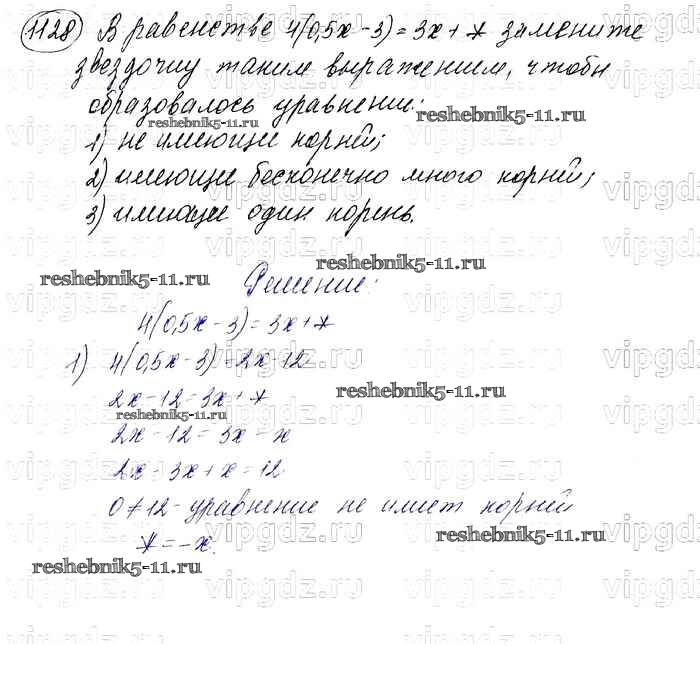 1128) В равенстве 4(0,5x - 3) = 3x + * замените
звездочку таким выражением, чтобы
образовалось уравнение:
reshebnik5-11.ru
reshebnik5-11.ru
1) не имеющие корней;
2) имеющие бесконечно много корней;
3) имеющие один корень.
reshebnik5-11.ru
reshebnik5-11.ru
Решение:
4(0,5x - 3) = 3x + *
1) 4(0,5x - 3) = 2x - 12
reshebnik5-11.ru
2x - 12 = 3x + *
reshebnik5-11.ru
2x - 12 = 3x - x
2x = 3x + x = 12
0 ≠ 12 - уравнение не имеет корней
reshebnik5-11.ru
* = -x.
reshebnik5-11.ru
vipgdz.ru